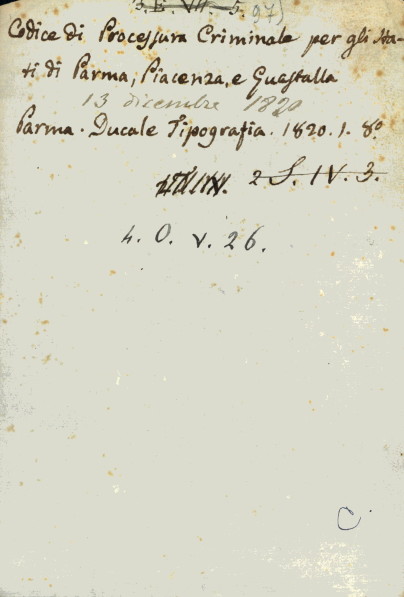 3. E. VII. 5. 97)
Codice di Processura Criminale per gli Sta-
ti di Parma, Piacenza, e Guastalla
13 dicembre 1820
Parma. Ducale Tipografia. 1820. 1. 8º
2 S. IV. 3.
4. O. V. 26.
C